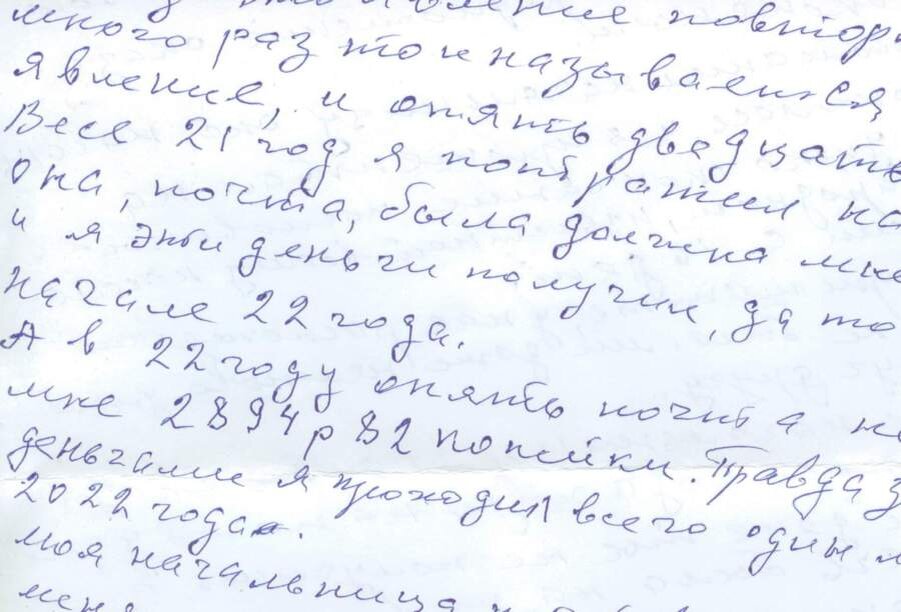 явление повтор
много раз то и называется
явление, и опять двадцать
Весь 21 год я потратил на
она, почта, была должна мне
и я эти деньги получил, да то
начале 22 года.
А в 22 году опять почта не
мне 2894 р 82 копейки. Правда з
деньгами я проходил всего один м
2022 года.
моя начальница
меня